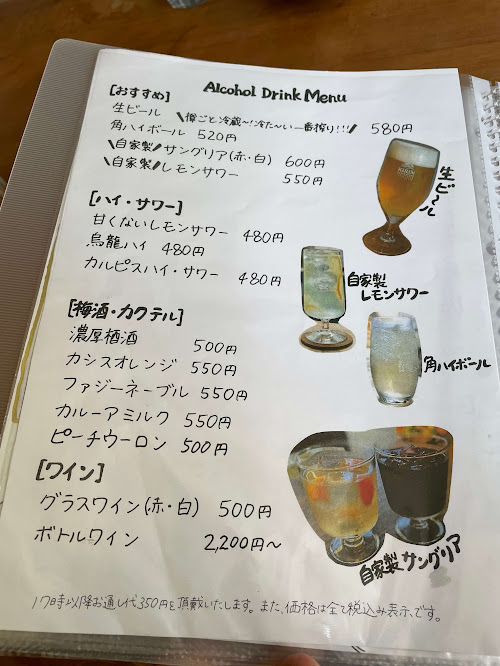 Alcohol Drink Menu
[おすすめ]
生ビール \樽ごと冷蔵〜!冷た〜い一番搾り!!!/ 580円
角ハイボール 520円
\自家製/サングリア(赤・白) 600円
\自家製/レモンサワー 550円
[ハイ・サワー]
甘くないレモンサワー 480円
烏龍ハイ 480円
カルピスハイ・サワー 480円
[梅酒・カクテル]
濃厚梅酒 500円
カシスオレンジ 550円
ファジーネーブル 550円
カルーアミルク 550円
ピーチウーロン 500円
[ワイン]
グラスワイン(赤・白) 500円
ボトルワイン 2,200円〜
生ビ〜ル
KIRIN
自家製
レモンサワー
角ハイボール
自家製サングリア
17時以降お通し代350円を頂戴いたします。また、価格は全て税込み表示です。